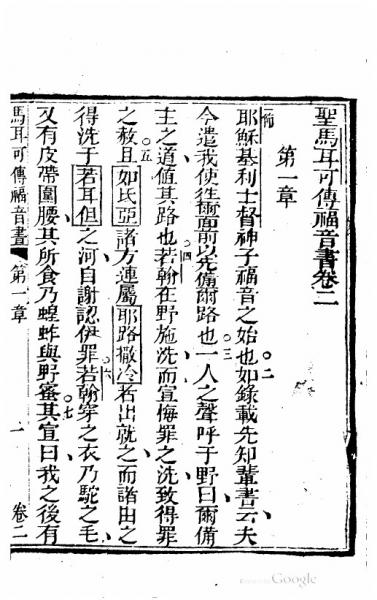 聖馬耳可傳福音書卷二
第一章
一節耶穌基利士督神子福音之始也○二如錄載先知輩書云夫
今遣我使往爾面前以先備爾路也○三一人之聲呼于野曰爾備
主之道值其路也○四若翰在野施洗而宣悔罪之洗致得罪
之赦○五且如氐亞諸方連屬耶路撒冷者出就之而諸由之
得洗于若耳但之河自謝認伊罪○六若翰穿之衣乃駝之毛
又有皮帶圍腰其所食乃蝗蚱與野蜜○七其宣曰我之後有
馬耳可傳福音書 第一章 一 卷二
Google